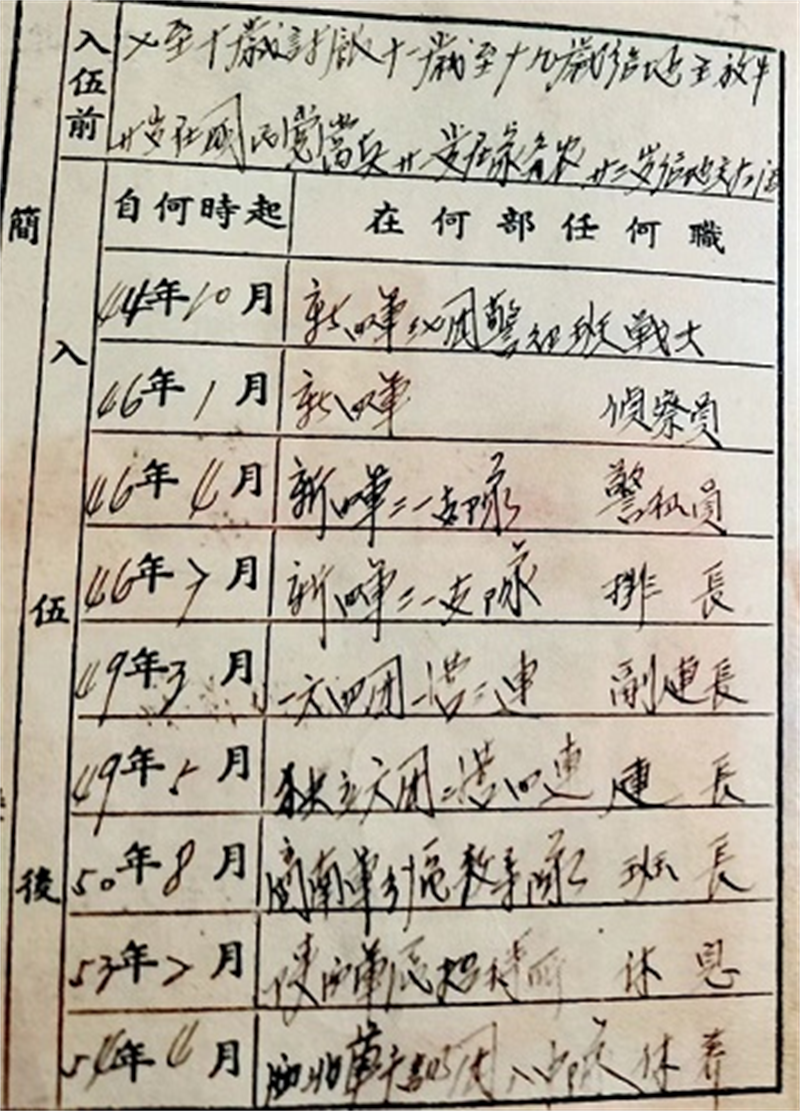 入伍前
七至十歲討飯十一歲至十九歲給地主放牛
廿岁在國民党當兵廿一岁在家务农廿二岁给地主
簡
入伍後
自何時起 在何部任何職
44年10月 新四軍 团警 班戰士
46年1月 新四軍 偵察員
46年4月 新四軍二一支隊 警 員
46年7月 新四軍二一支隊 排長
49年3月 一六四团一营三連 副連長
49年5月 独立六团二营四連 連長
50年8月 軍 區教導隊 班長
53年7月 陕西軍區招待所 休息
54年4月 团八中隊 休養